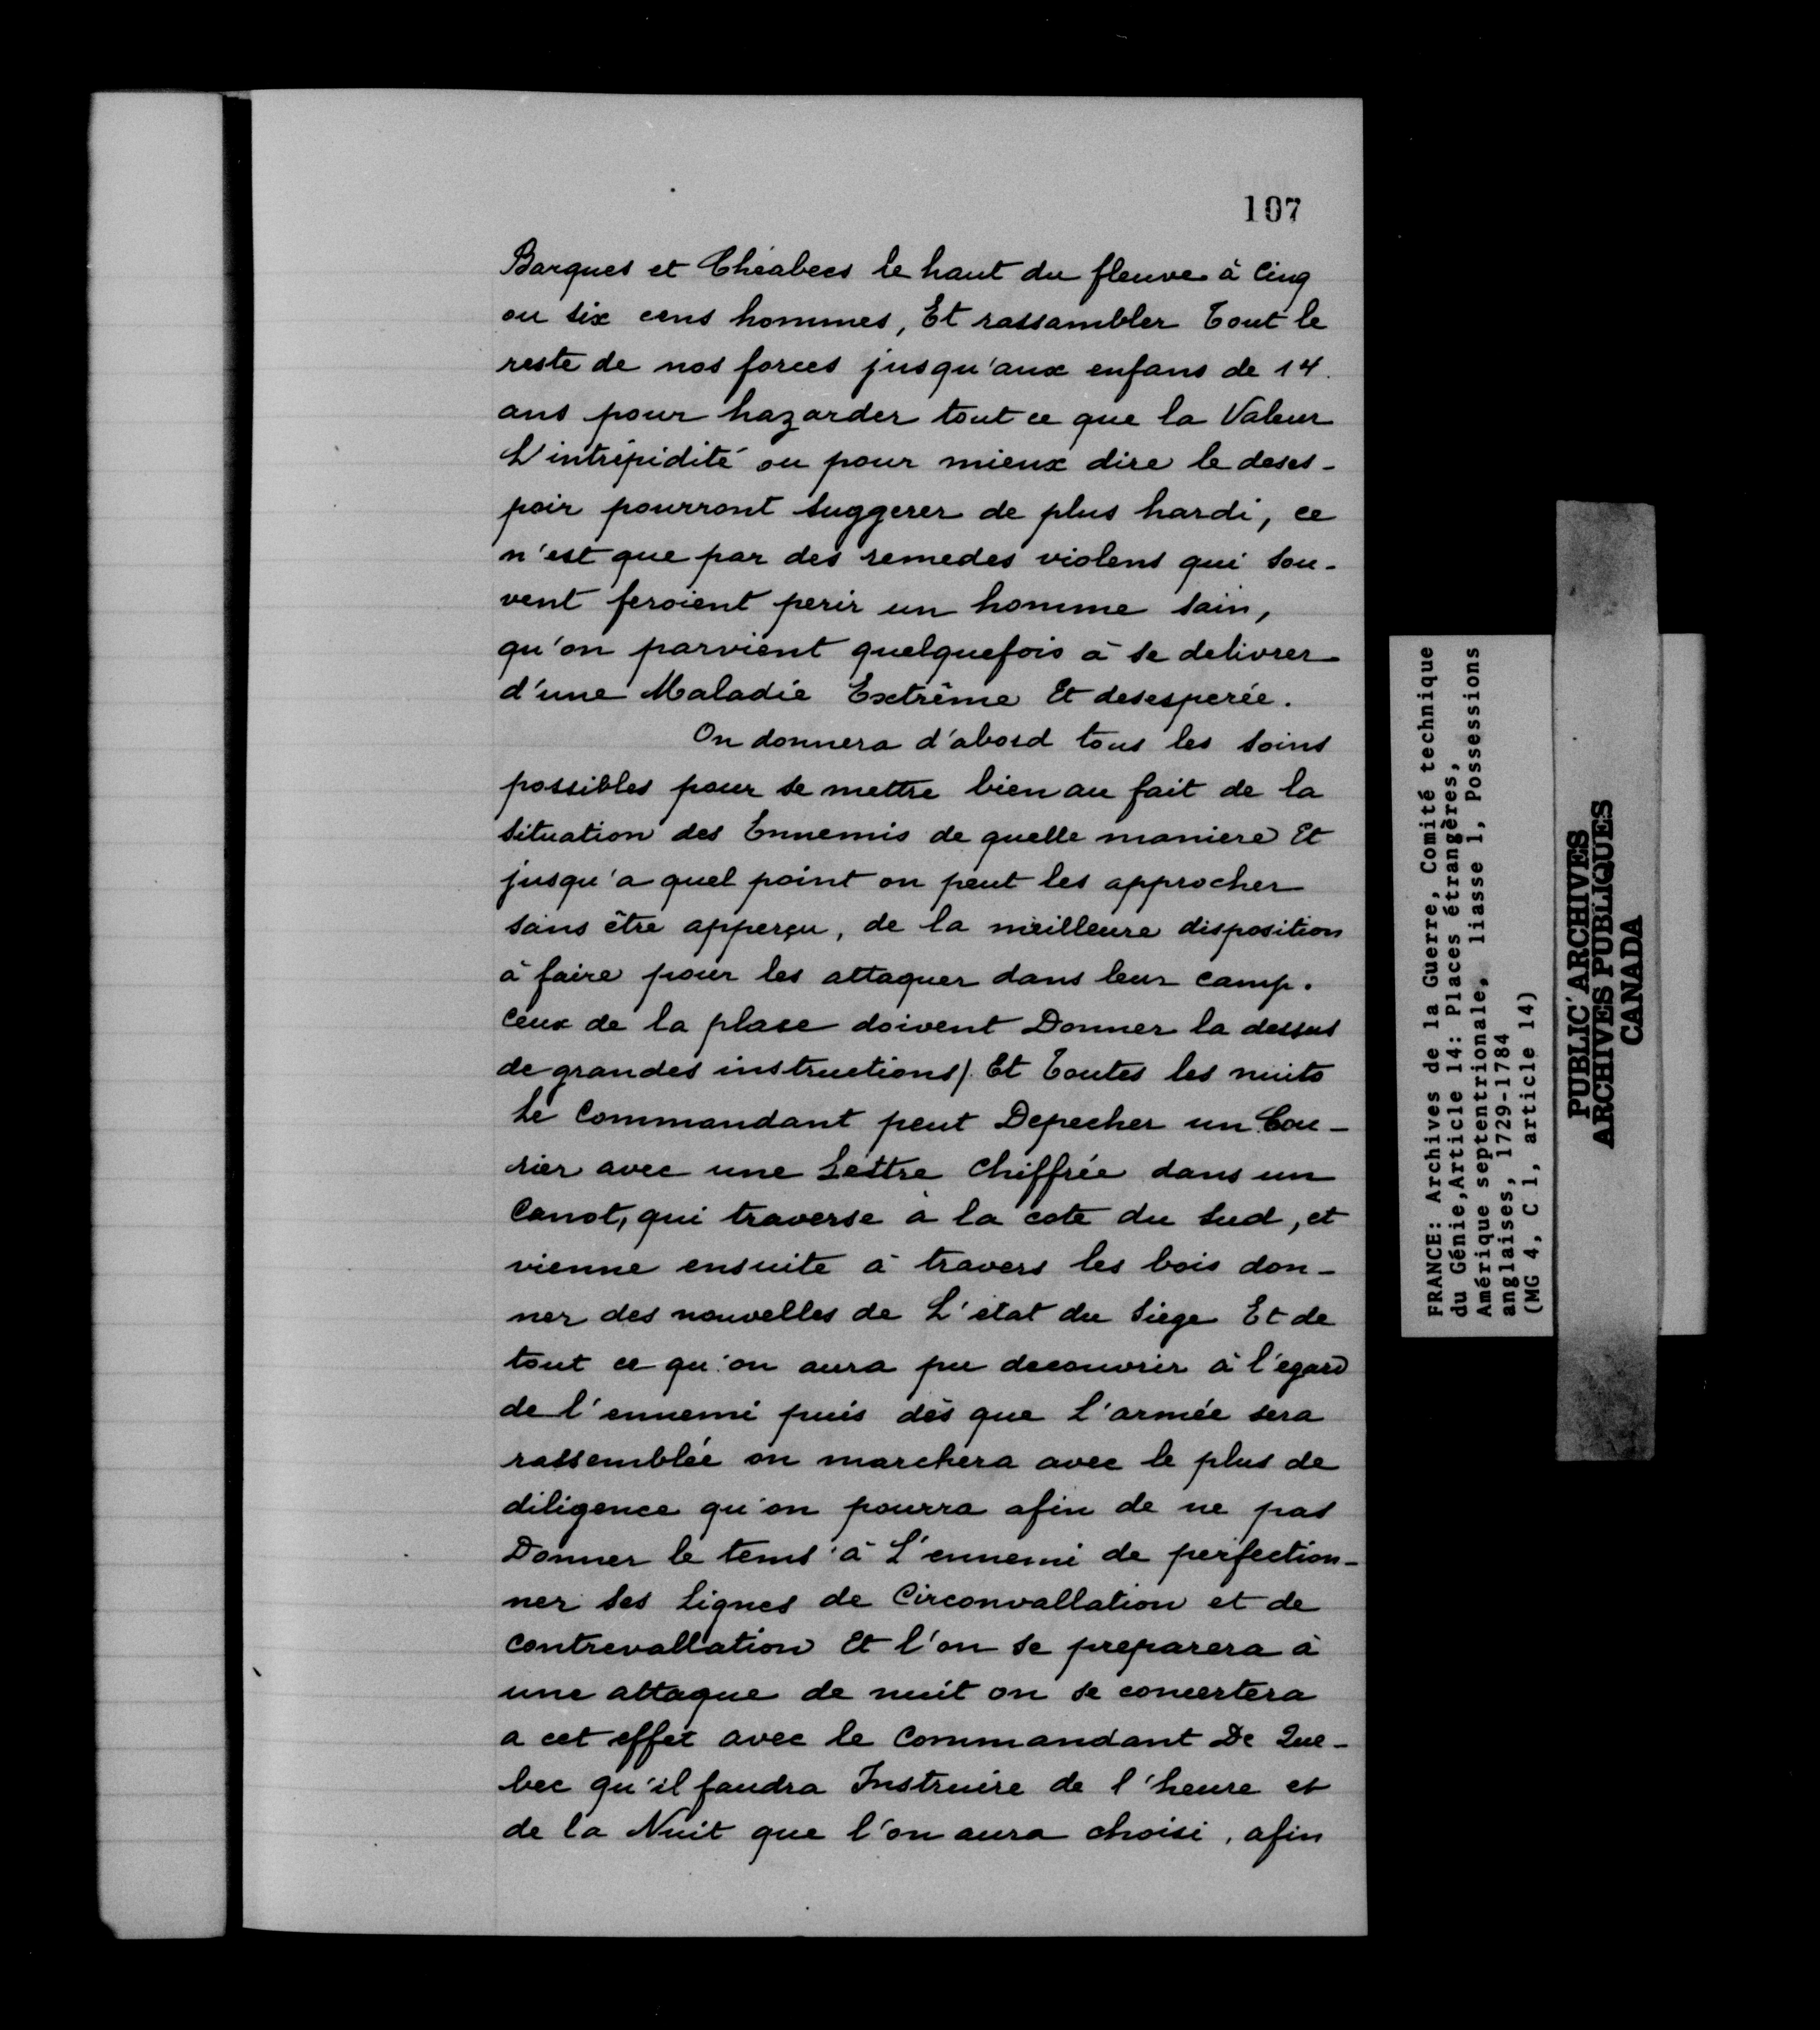 107
Barques et Chéabecs le haut du fleuve à Cinq
ou six cens hommes, Et rassambler Tout le
reste de nos forces jusqu'aux enfans de 14.
ans pour hazarder tout ce que la Valeur
L'intrépidité ou pour mieux dire le deses-
poir pourront suggerer de plus hardi, ce
n'est que par des remedes violens qui sou-
vent feroient perir un homme sain,
qu'on parvient quelquefois à se delivrer
d'une Maladie Extrême Et desesperée.
On donnera d'abord tous les soins
possibles pour se mettre bien au fait de la
situation des Ennemis de quelle maniere Et
jusqu'a quel point on peut les approcher
sans être apperçu, de la meilleure disposition
à faire pour les attaquer dans leur camp.
Ceux de la place doivent Donner la dessus
de grandes instructions). Et Toutes les nuits
Le Commandant peut Depecher un Cou-
rier avec une Lettre Chiffrée dans un
Canot, qui traverse à la cote du Sud, et
vienne ensuite à travers les bois don-
ner des nouvelles de L'état du Siege Et de
tout ce qu'on aura pu decouvrir à l'egard
de l'ennemi puis dès que L'armée sera
rassemblée on marchera avec le plus de
diligence qu'on pourra afin de ne pas
Donner le tems à L'ennemi de perfection-
ner ses Lignes de Circonvallation et de
Contrevallation Et l'on se preparera à
une attaque de nuit on se concertera
a cet effet avec le Commandant De Que-
bec qu'il faudra Instruire de l'heure et
de la Nuit que l'on aura choisi, afin
FRANCE: Archives de la Guerre, Comité technique
du Génie,Article 14: Places étrangères,
Amérique septentrionale, liasse 1, Possessions
anglaises, 1729-1784
(MG 4, C 1, article 14)
PUBLIC ARCHIVES
ARCHIVES PUBLIQUES
CANADA